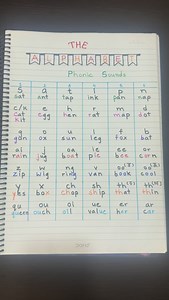 THE
ALPHABET
Phonic Sounds
s a t i p n
sat ant tap ink pan nap
c/k e h r m d
cat egg hen rat map dot
kit
g o u l f b
gun ox sun leg fox bat
ai j oa ie ee or
rain jug boat pie bee corn
z w ng v oo oo
zip wig ring van book cool
y x ch sh th th
yes box chop ship that thin
qu ou oi ue er ar
queen ouch oil value her car